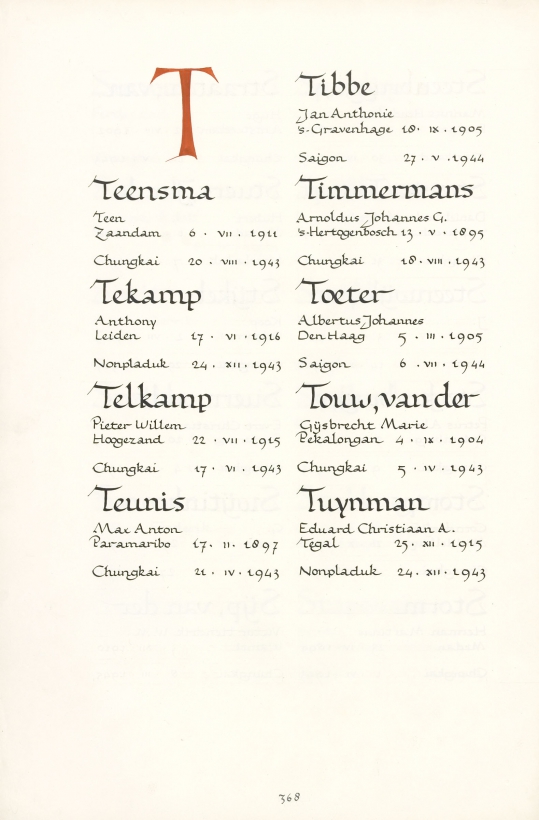 T
Teensma
Teen
Zaandam 6 · VII · 1911
Chungkai 20 · VIII · 1943
Tekamp
Anthony
Leiden 17 · VI · 1916
Nonpladuk 24 · XII · 1943
Telkamp
Pieter Willem
Hoogezand 22 · VII · 1915
Chungkai 17 · VI · 1943
Teunis
Max Anton
Paramaribo 17 · II · 1897
Chungkai 21 · IV · 1943
Tibbe
Jan Anthonie
's-Gravenhage 18 · IX · 1905
Saigon 27 · V · 1944
Timmermans
Arnoldus Johannes G.
's-Hertogenbosch 13 · V · 1895
Chungkai 18 · VIII · 1943
Toeter
Albertus Johannes
Den Haag 5 · III · 1905
Saigon 6 · VII · 1944
Touw, van der
Gijsbrecht Marie
Pekalongan 4 · IX · 1904
Chungkai 5 · IV · 1943
Tuynman
Eduard Christiaan A.
Tegal 25 · XII · 1915
Nonpladuk 24 · XII · 1943
368